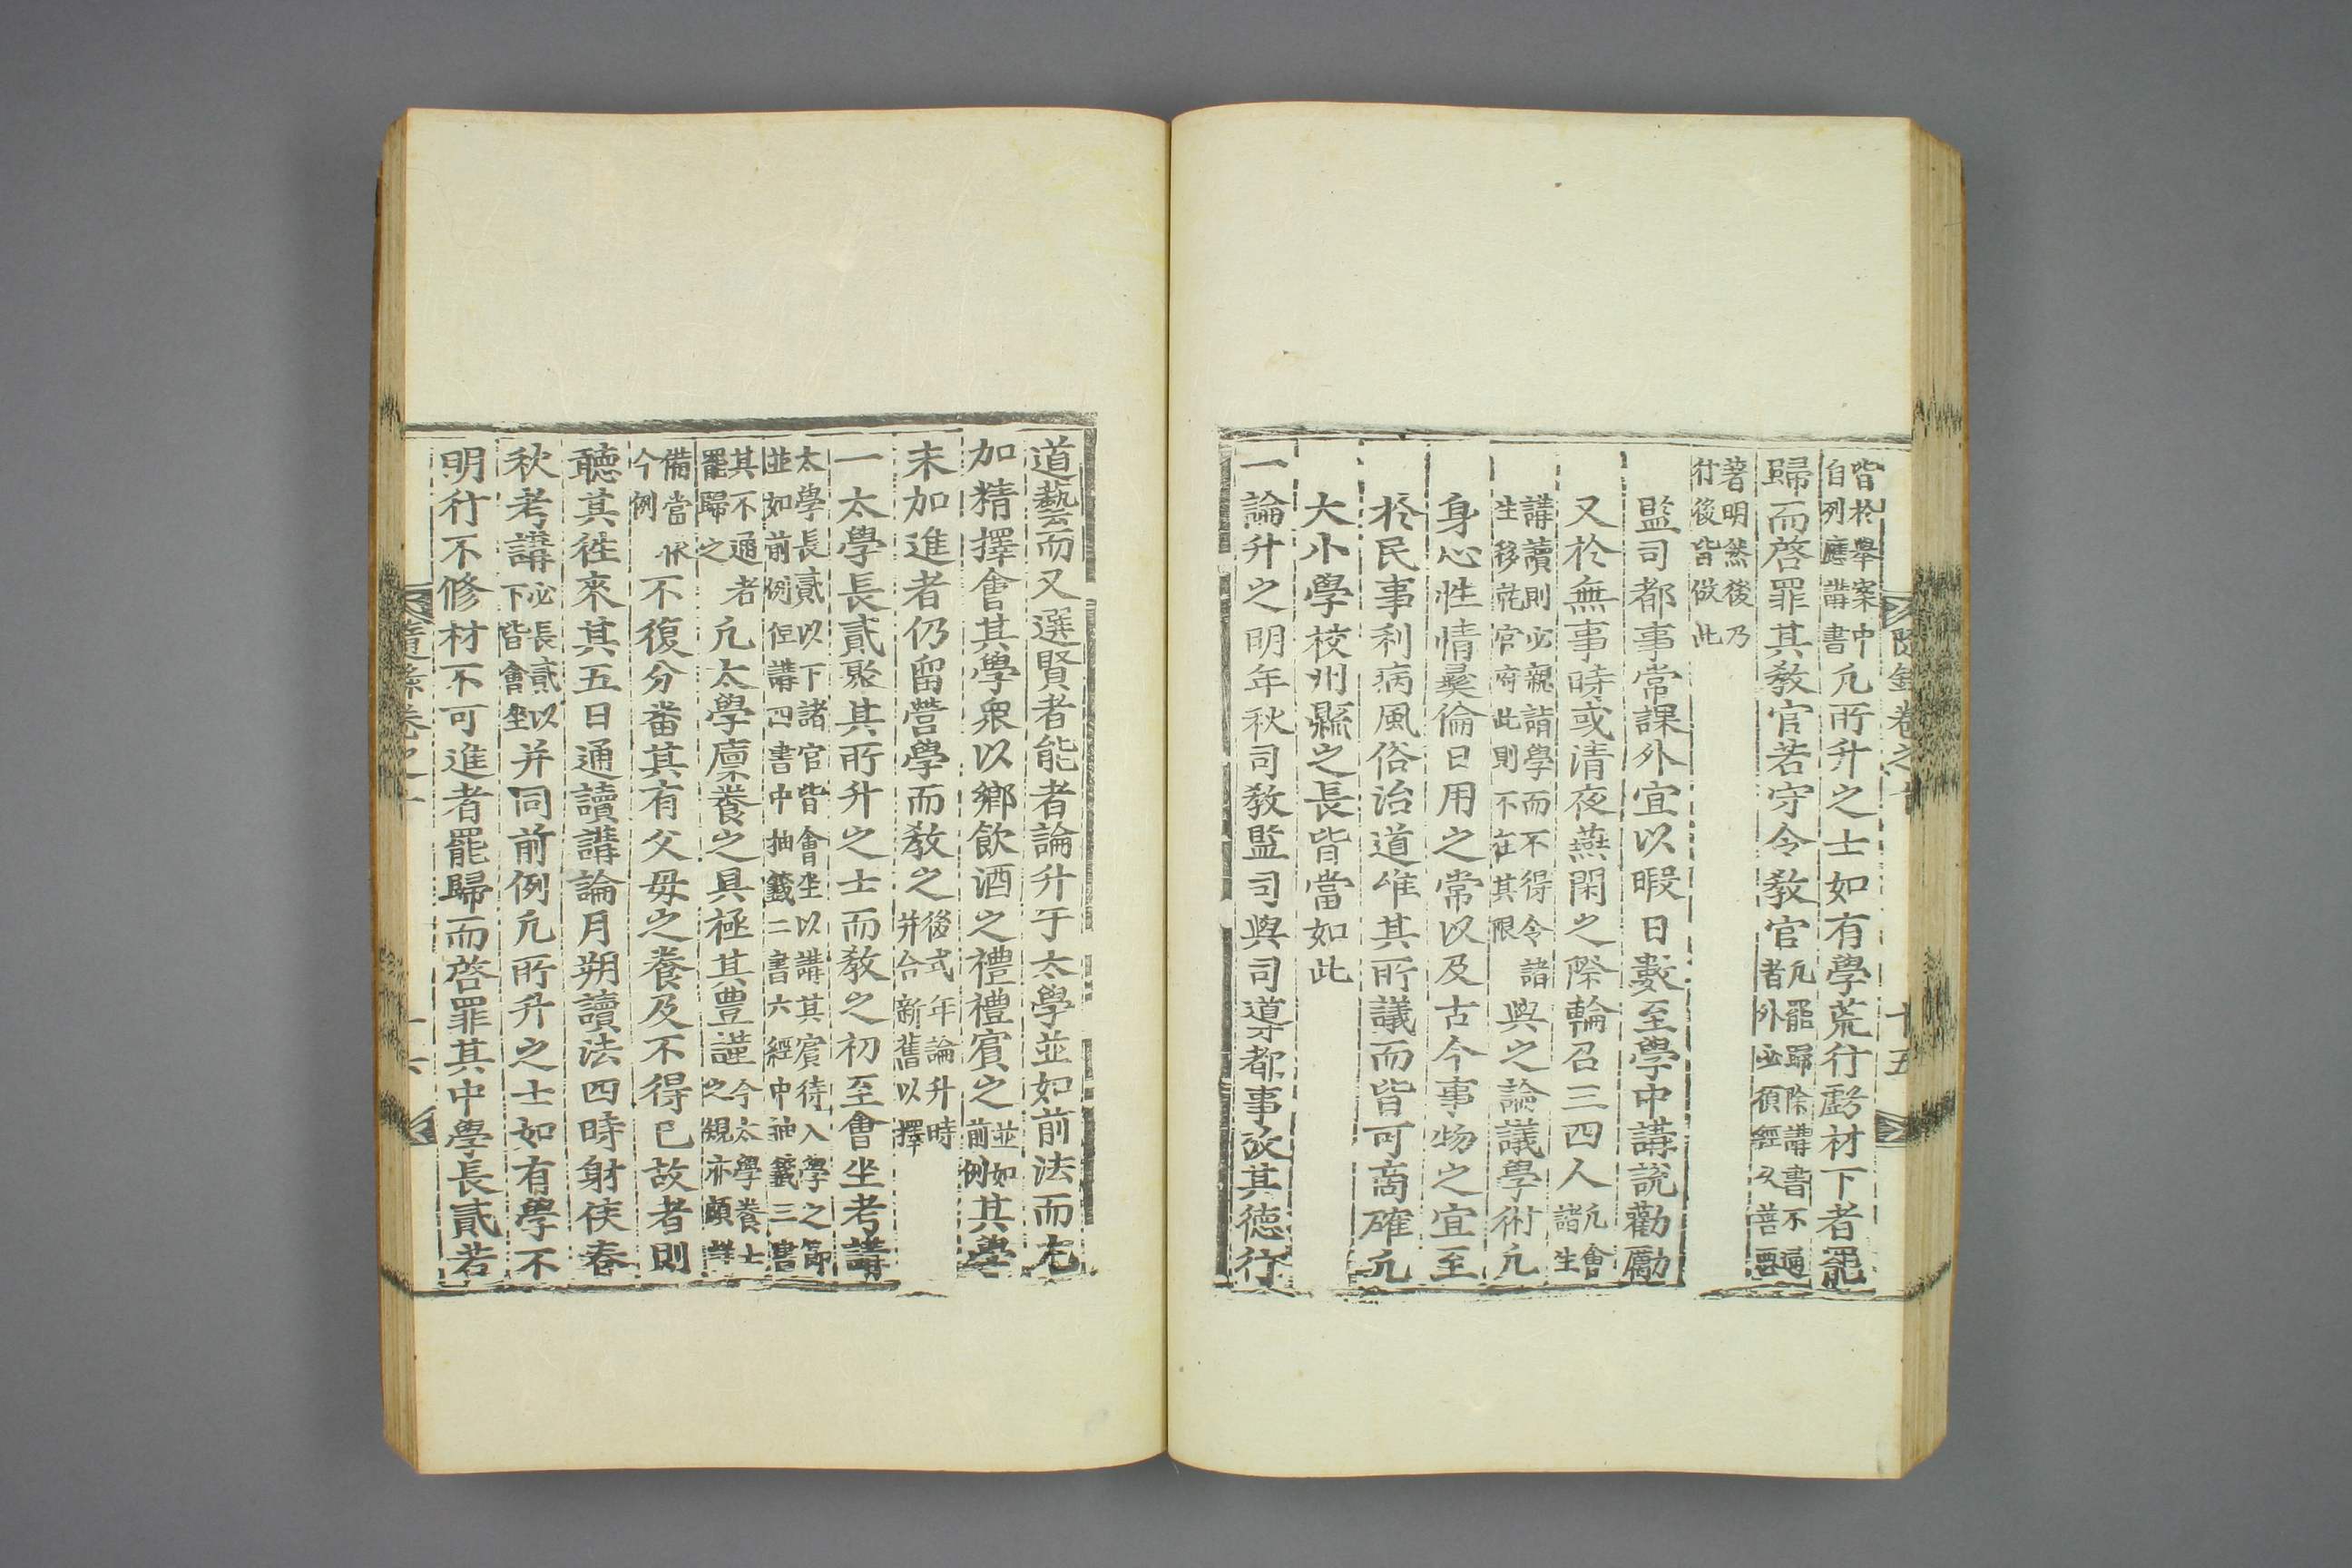 皆於擧案中
自列應講書
凡所升之士如有學荒行虧材下者罷
歸而啓罪其敎官若守令敎官
凡罷歸除講書不通
者外必須經久善惡
著明然後乃
行後皆倣此
監司都事常課外宜以暇日數至學中講說勸勵
又於無事時或淸夜燕閑之際輪召三四人
凡會
諸生
講讀則必親詣學而不得令諸
生移就官府此則不在其限
與之論議學術凡
身心性情彛倫日用之常以及古今事物之宜至
於民事利病風俗治道唯其所議而皆可商確凡
大小學校州縣之長皆當如此
一論升之明年秋司敎監司與司導都事攷其德行
道藝而又選賢者能者論升于太學並如前法而尤
加精擇會其學衆以鄕飮酒之禮禮賓之
並如
前例
其學
未加進者仍留營學而敎之
後式年論升時
幷合新舊以擇
一太學長貳聚其所升之士而敎之初至會坐考講
太學長貳以下諸官皆會坐以講其賓待入學之節
並如前例但講四書中抽籤二書六經中抽籤三書
其不通者
罷歸之
凡太學廩養之具極其豊謹
今太學養士
之規亦頗詳
備當依
今例
不復分番其有父母之養及不得已故者則
聽其徃來其五日通讀講論月朔讀法四時射侯春
秋考講
必長貳以
下皆會坐
幷同前例凡所升之士如有學不
明行不修材不可進者罷歸而啓罪其中學長貳若
隨錄卷之十
十五